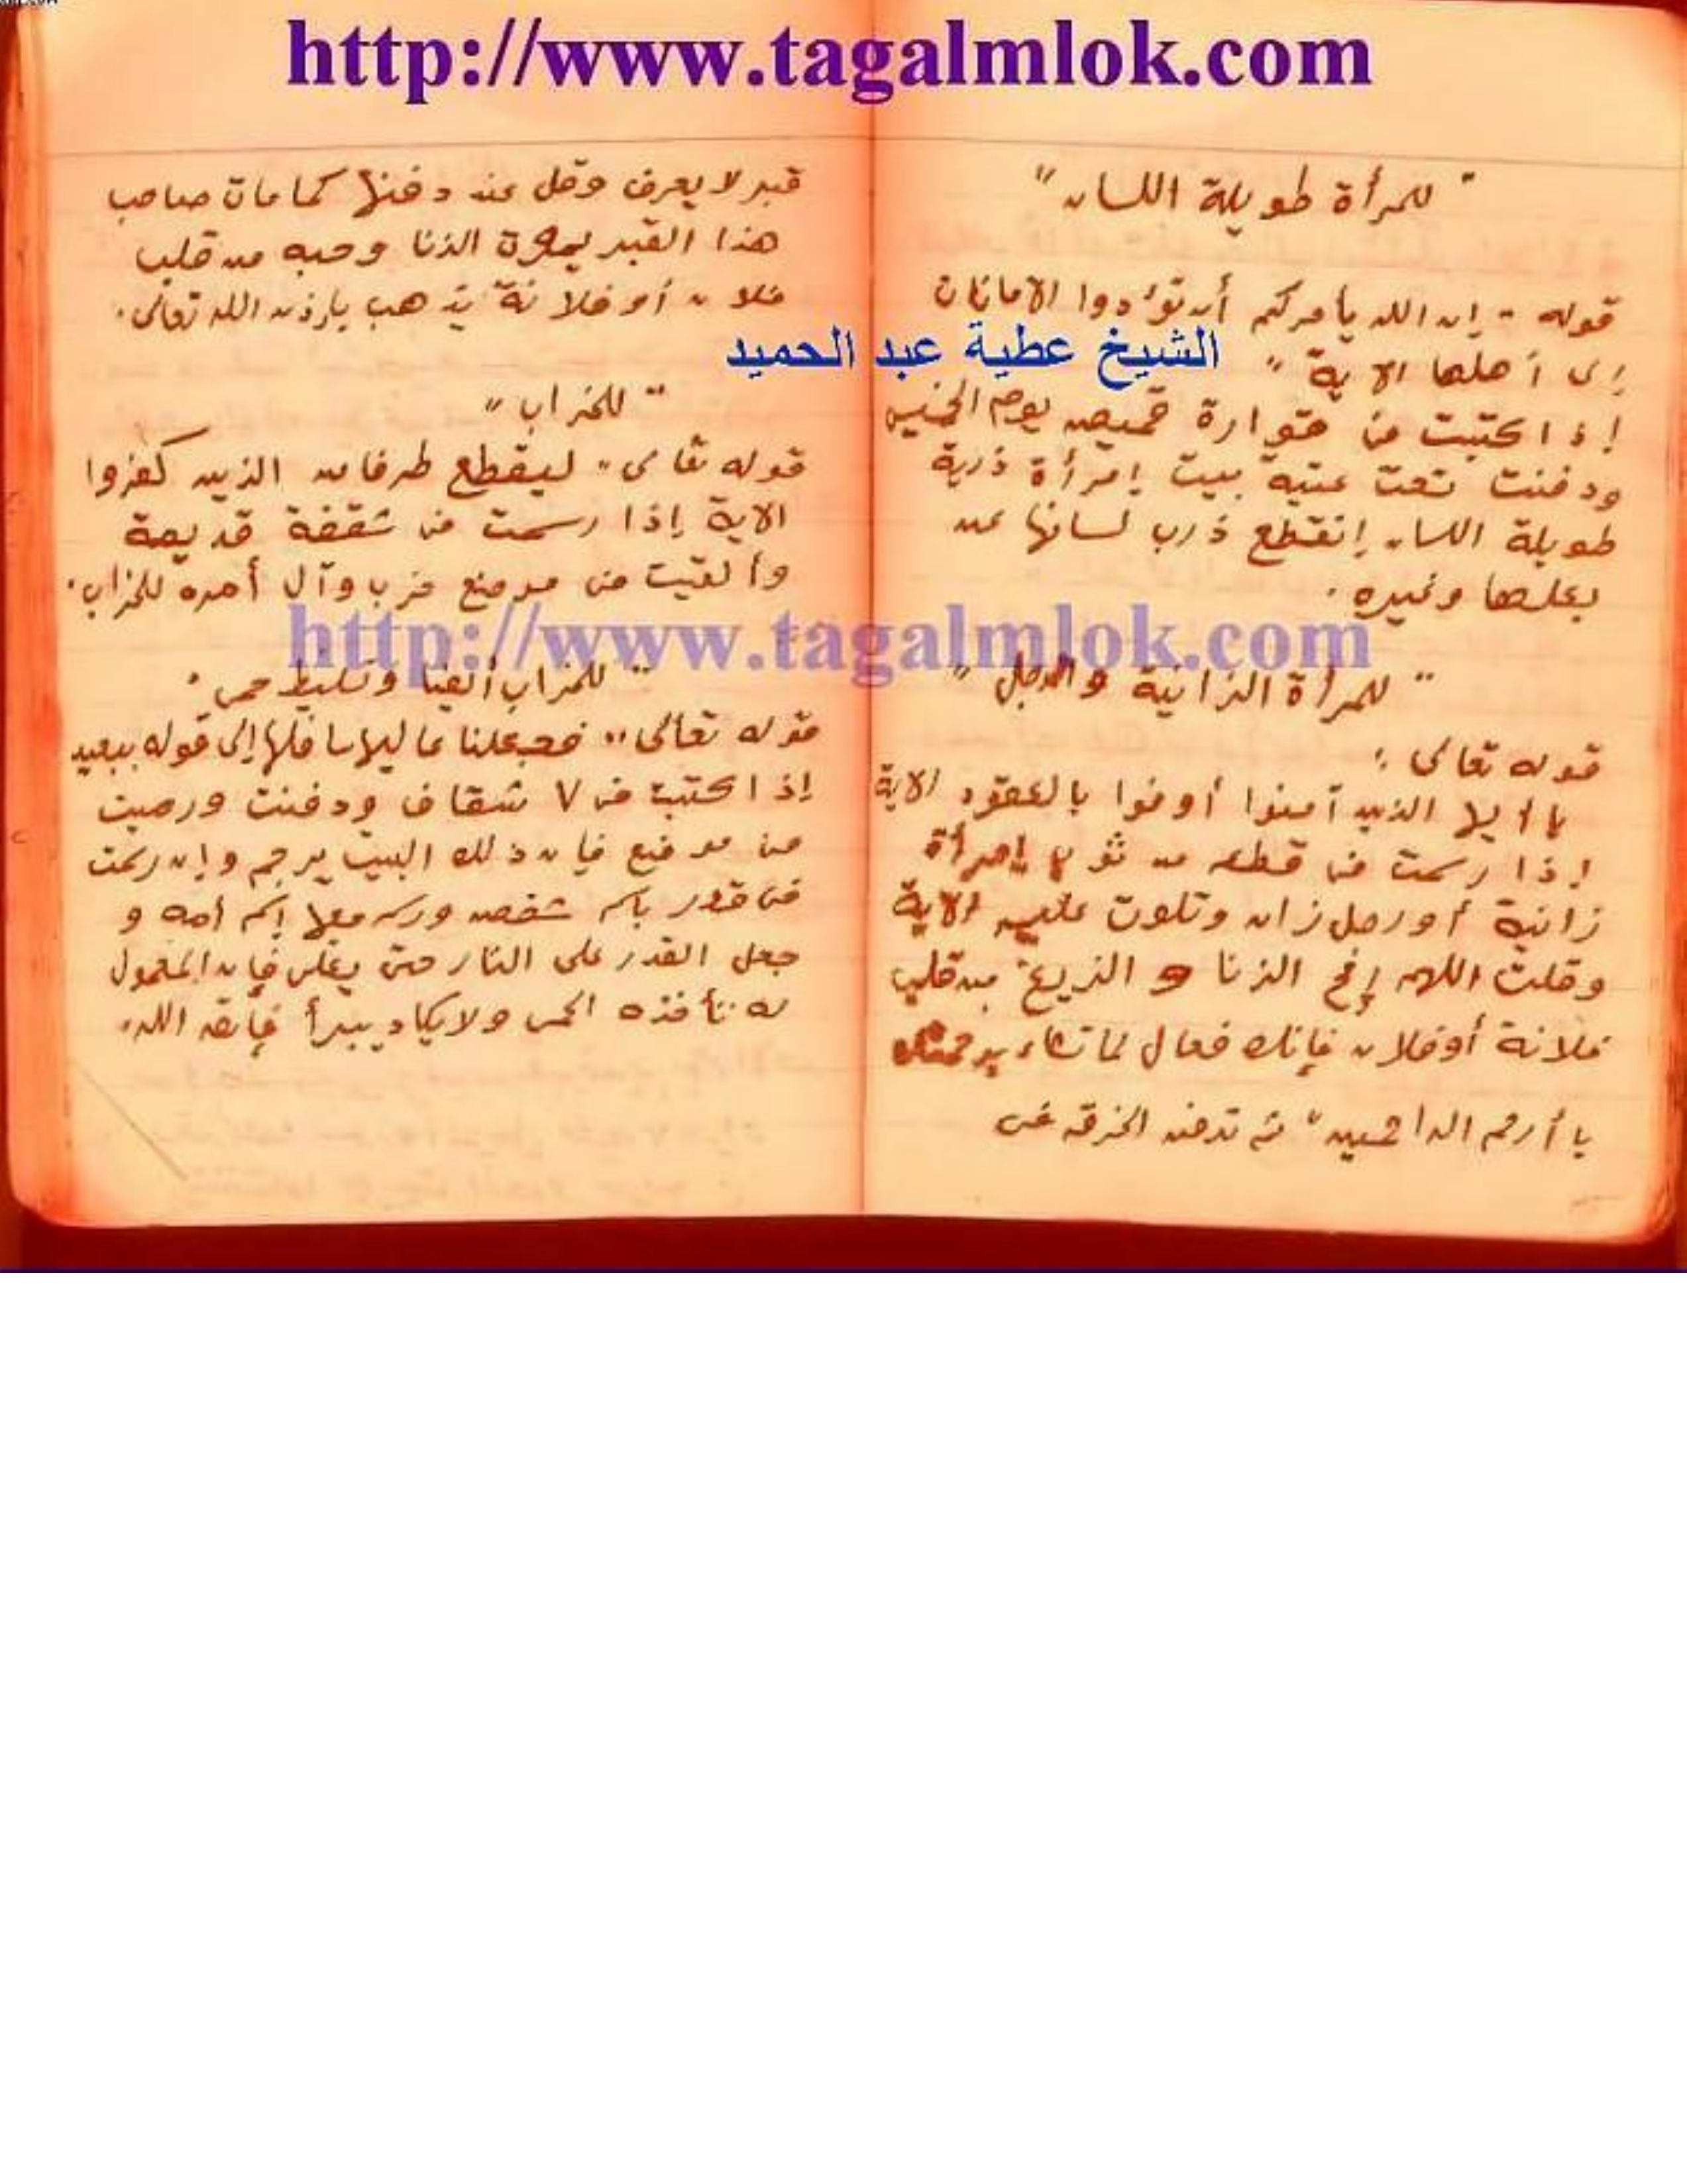 http://www.tagalmlok.com
" للمرأة طويلة اللسان "
قوله " إن الله يأمركم أن تؤدوا الامانات
إلى أهلها الاية "
الشيخ عطية عبد الحميد
إذا كتبت فى قوارة قميص يوم الخميس
ودفنت تحت عتبة بيت إمرأة ذربة
طويلة اللسان إنقطع ذرب لسانها عن
بعلها وغيره .
" للمرأة الزانية والرجل "
قوله تعالى :
يا أيها الذين آمنوا أوفوا بالعقود الاية
إذا رسمت فى قطعه من ثوب إمرأة
زانية أو رجل زان وتلوت عليه الاية
وقلت اللهم الزنا و الزيغ من قلب
فلانة أو فلان فإنك فعال لما تشاء برحمتك
يا أرحم الراحمين " ثم تدفن الخرقه فى
قبر لا يعرف وقل عند دفنها كما مات صاحب
هذا القبر يموت الزنا وحبه من قلب
فلان أو فلانة يذهب بإذن الله تعالى .
" للخراب "
قوله تعالى " ليقطع طرفا من الذين كفروا
الاية إذا رسمت فى شقفة قديمة
وألقيت فى موضع خرب وآل أمره للخراب .
http://www.tagalmlok.com
" للخراب أيضا وتسليط حمى "
قوله تعالى " فجعلنا عاليها سافلها إلى قوله ببعيد
إذا كتبت فى ٧ شقاف ودفنت ورميت
فى موضع فإن ذلك البيت يرجم وإن رسمت
فى قدر باسم شخص ورسم معها إسم أمه و
جعل القدر على النار حتى يغلى فإن المعمول
له تأخذه الحمى ولا يكاد يبرأ فإتق الله .